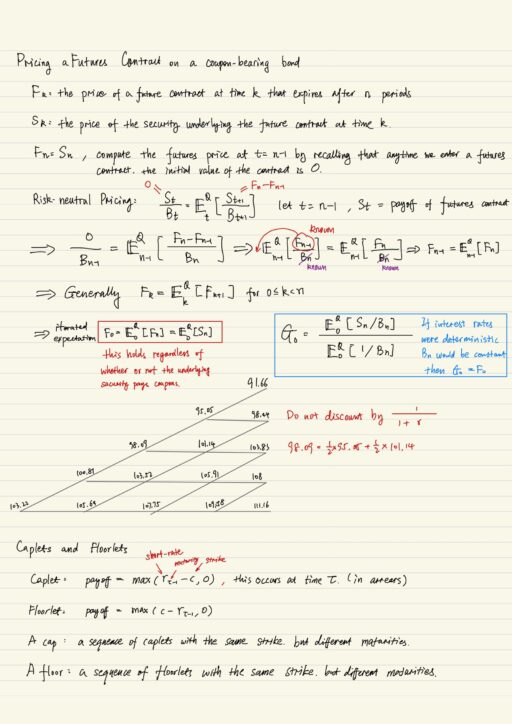 Pricing a Futures Contract on a coupon-bearing bond
Fk: the price of a future contract at time k that expires after n periods
Sk: the price of the security underlying the future contract at time k
Fn = Sn , compute the futures price at t = n-1 by recalling that anytime we enter a futures
contract. the initial value of the contract is 0.
0 Fn-Fn-1
Risk-neutral Pricing: St/Bt = E^Q_t [St+1/Bt+1] let t = n-1 , St = payoff of futures contract
known
⟹ 0/Bn-1 = E^Q_n-1 [(Fn-Fn-1)/Bn] ⟹ E^Q_n-1 [Fn-1/Bn] = E^Q_n-1 [Fn/Bn] ⟹ Fn-1 = E^Q_n-1 [Fn]
known known
⟹ Generally Fk = E^Q_k [Fk+1] for 0≤k<n
⟹ iterated expectation F0 = E^Q_0 [Fn] = E^Q_0 [Sn]
this holds regardless of
whether or not the underlying
security pays coupons.
G0 = E^Q_0 [Sn/Bn] / E^Q_0 [1/Bn]
If interest rates
were deterministic
Bn would be constant
then G0 = F0
91.66
95.05 98.44
98.09 101.14 103.83
100.81 103.52 105.91 108
103.22 105.64 107.75 109.58 111.16
Do not discount by 1/(1+r)
98.09 = ½×95.05 + ½×101.14
Caplets and Floorlets
short-rate
maturity strike
Caplet: payoff = max(rτ-1 - c, 0) , this occurs at time τ. (in arrears)
Floorlet: payoff = max(c - rτ-1, 0)
A cap : a sequence of caplets with the same strike. but different maturities.
A floor : a sequence of floorlets with the same strike. but different maturities.